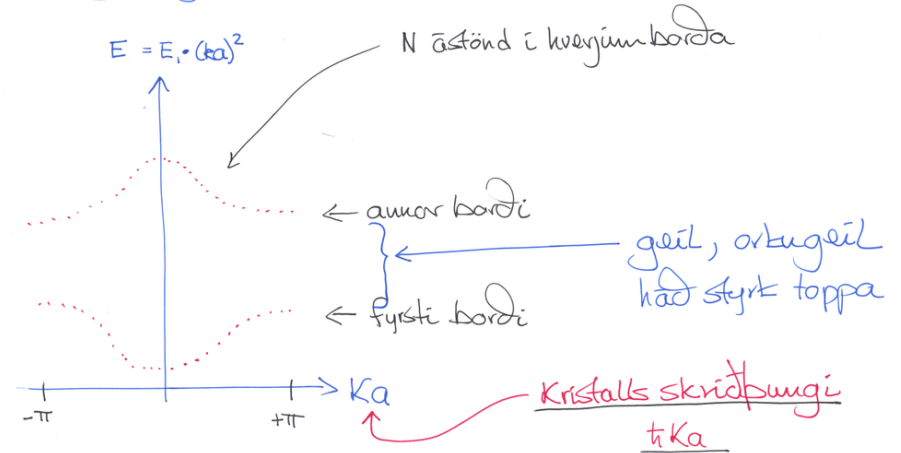 E = E₁·(ka)²
N ástönd í hverjum borða
← annar borði
geil, orkugeil
háð styrk toppa
← fyrsti borði
-π
+π
Ka
Kristalls skriðþungi
ħKa